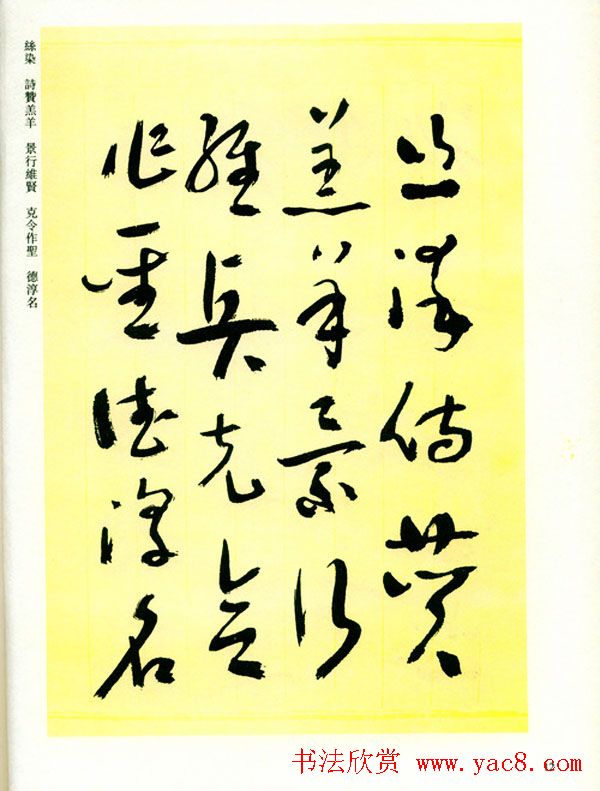 絲染詩贊
羔羊景行
維賢克念
作聖德淳名
絲染 詩贊羔羊 景行維賢 克令作聖 德淳名
书法欣赏 www.yac8.com